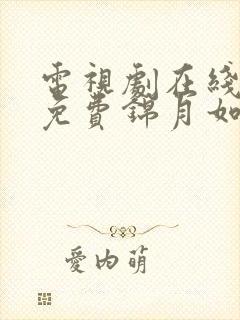 電視劇在綫
免費錦月如
愛內萌